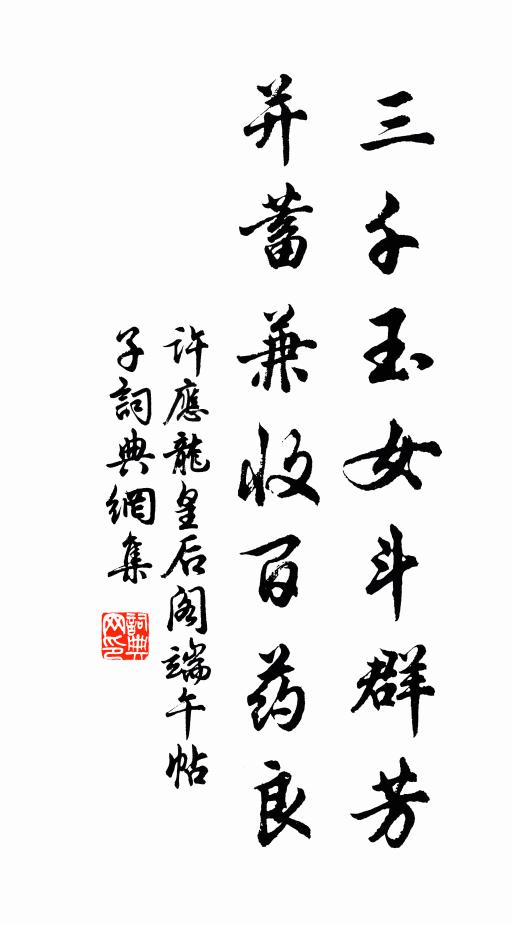 三千玉女斗群芳
并蓄兼收百药良
许應龍皇后阁端午帖
子詞典網集
詞典网印